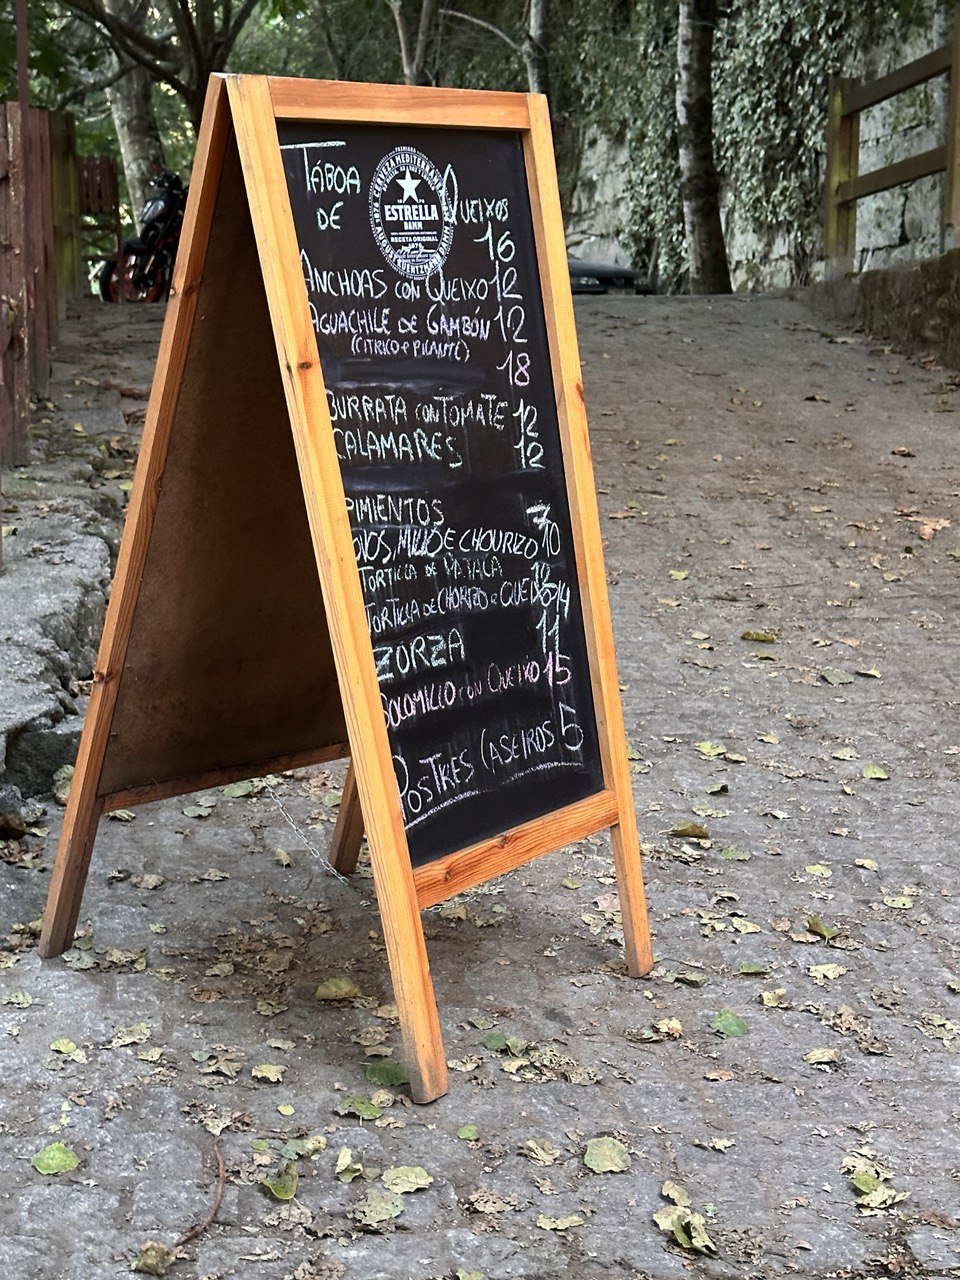 TÁBOA
DE
QUEIXOS
16
CERVEZA MEDITERRÁNEA
1876
ESTRELLA
DAMM
RECETA ORIGINAL
1876
AUGUST KUENTZMANN DAMM
ANCHOAS CON QUEIXO 12
AGUACHILE DE GAMBÓN 12
(CITRICO e PICANTE)
18
BURRATA CON TOMATE 12
CALAMARES 12
PIMIENTOS 7
OVOS, MILLO E CHOURIZO 10
TORTILLA DE PATACA 12
TORTILLA DE CHORIZO e QUEIXO 14
ZORZA 11
SOLOMILLO CON QUEIXO 15
POSTRES CASEIROS 5